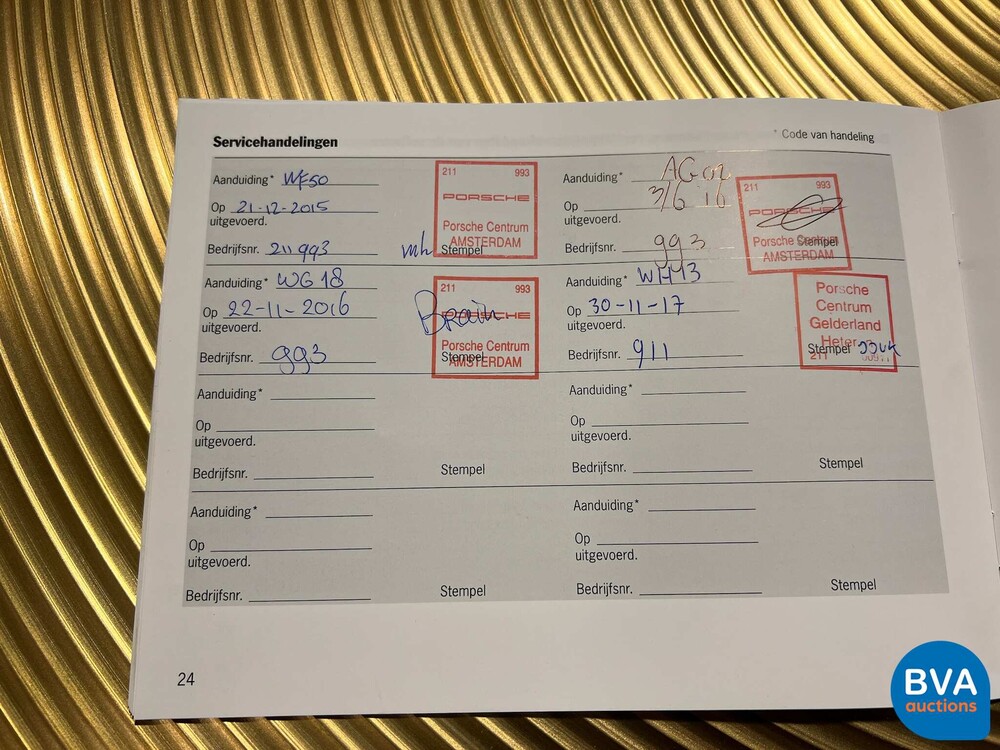 Servicehandelingen
* Code van handeling
Aanduiding* WF50
Op 21-12-2015
uitgevoerd.
Bedrijfsnr. 211993
mh Stempel
211 993
PORSCHE
Porsche Centrum
AMSTERDAM
Aanduiding* AG02
Op 3/6 16
uitgevoerd.
Bedrijfsnr. 993
Stempel
211 993
PORSCHE
Porsche Centrum
AMSTERDAM
Aanduiding* WG18
Op 22-11-2016
uitgevoerd.
Bedrijfsnr. 993
Stempel
211 993
PORSCHE
Porsche Centrum
AMSTERDAM
Aanduiding* WH13
Op 30-11-17
uitgevoerd.
Bedrijfsnr. 911
Stempel
Porsche
Centrum
Gelderland
Heteren
211 00911
Aanduiding*
Op
uitgevoerd.
Bedrijfsnr.
Stempel
Aanduiding*
Op
uitgevoerd.
Bedrijfsnr.
Stempel
Aanduiding*
Op
uitgevoerd.
Bedrijfsnr.
Stempel
Aanduiding*
Op
uitgevoerd.
Bedrijfsnr.
Stempel
24
BVA
auctions